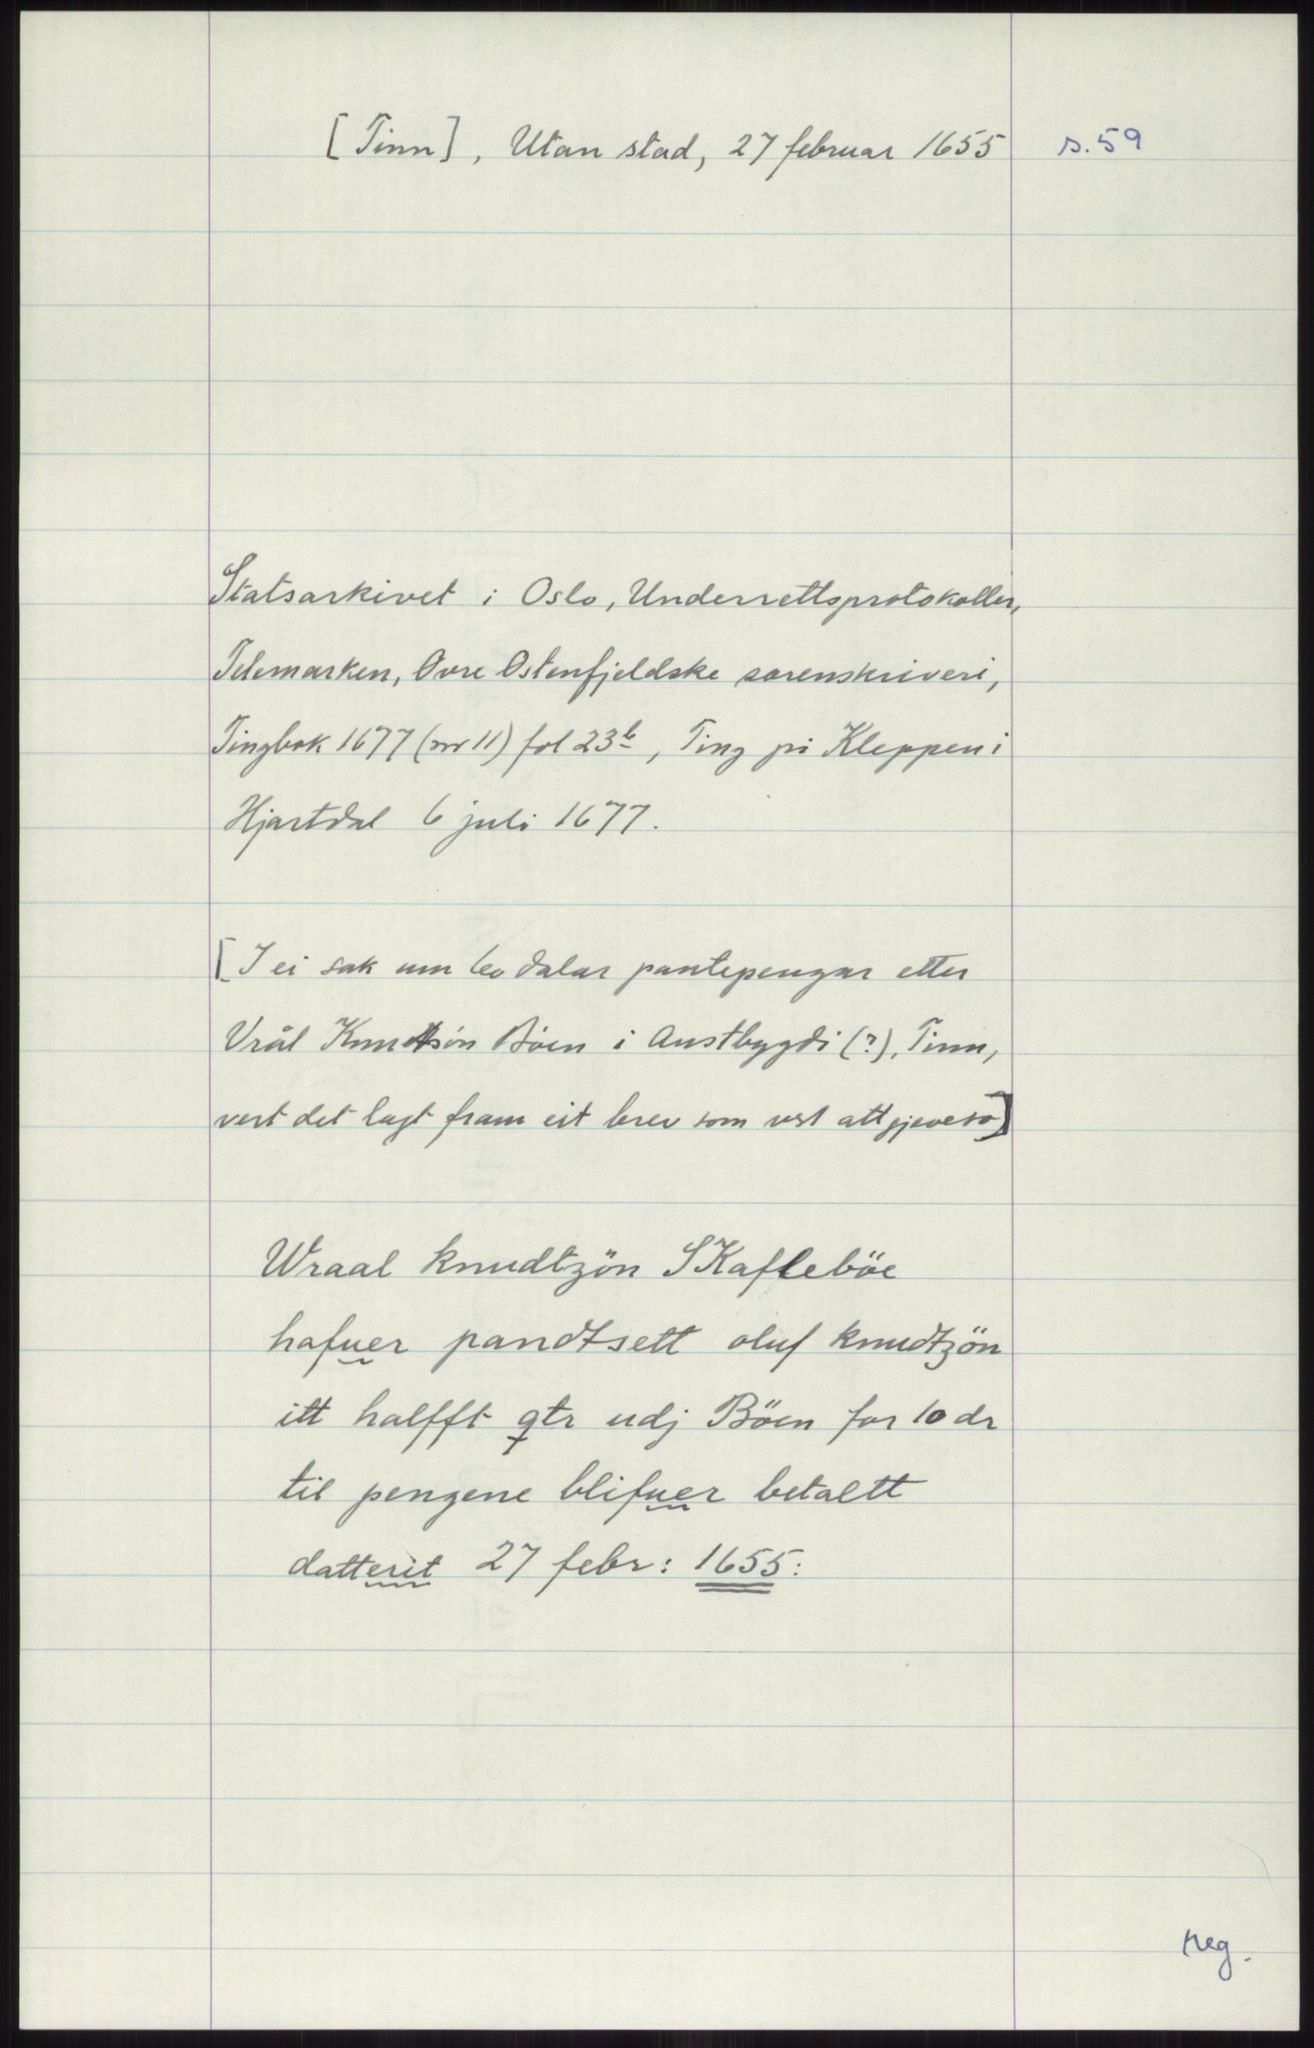 [Tinn], Utan stad, 27 februar 1655 s. 59
Statsarkivet i Oslo, Underrettsprotokoller,
Telemarken, Ovre Ostenfjeldske sorenskriveri,
Tingbok 1677 (nr 11) fol 23b, Ting på Kleppen i
Hjartdal 6 juli 1677.
[I ei sak um 60 dalar pantepengar etter
Vrål Knutsson Böen i Austbygdi (?), Tinn,
vert det lagt fram eit brev som vert attgjeve so]
Wraal knudtzön SKafleböe
hafuer pandtsett oluf knudtzön
itt halfft qtr udj Böen for 10 dr
til pengene blifuer betaltt
datterit 27 febr: 1655:
reg.